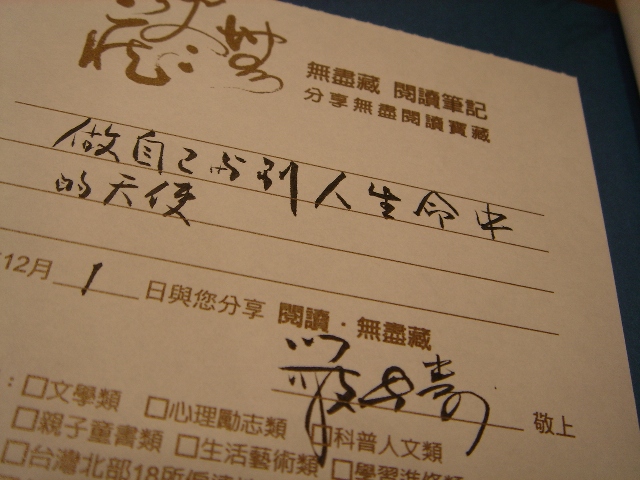 無盡藏 閱讀筆記
分享無盡閱讀寶藏
做自己與別人生命中
的天使
12月 1 日與您分享 閱讀．無盡藏
嚴長壽 敬上
：□文學類 □心理勵志類
□親子童書類 □科普人文類
□生活藝術類 □學習進修類
□台灣北部18所偏遠